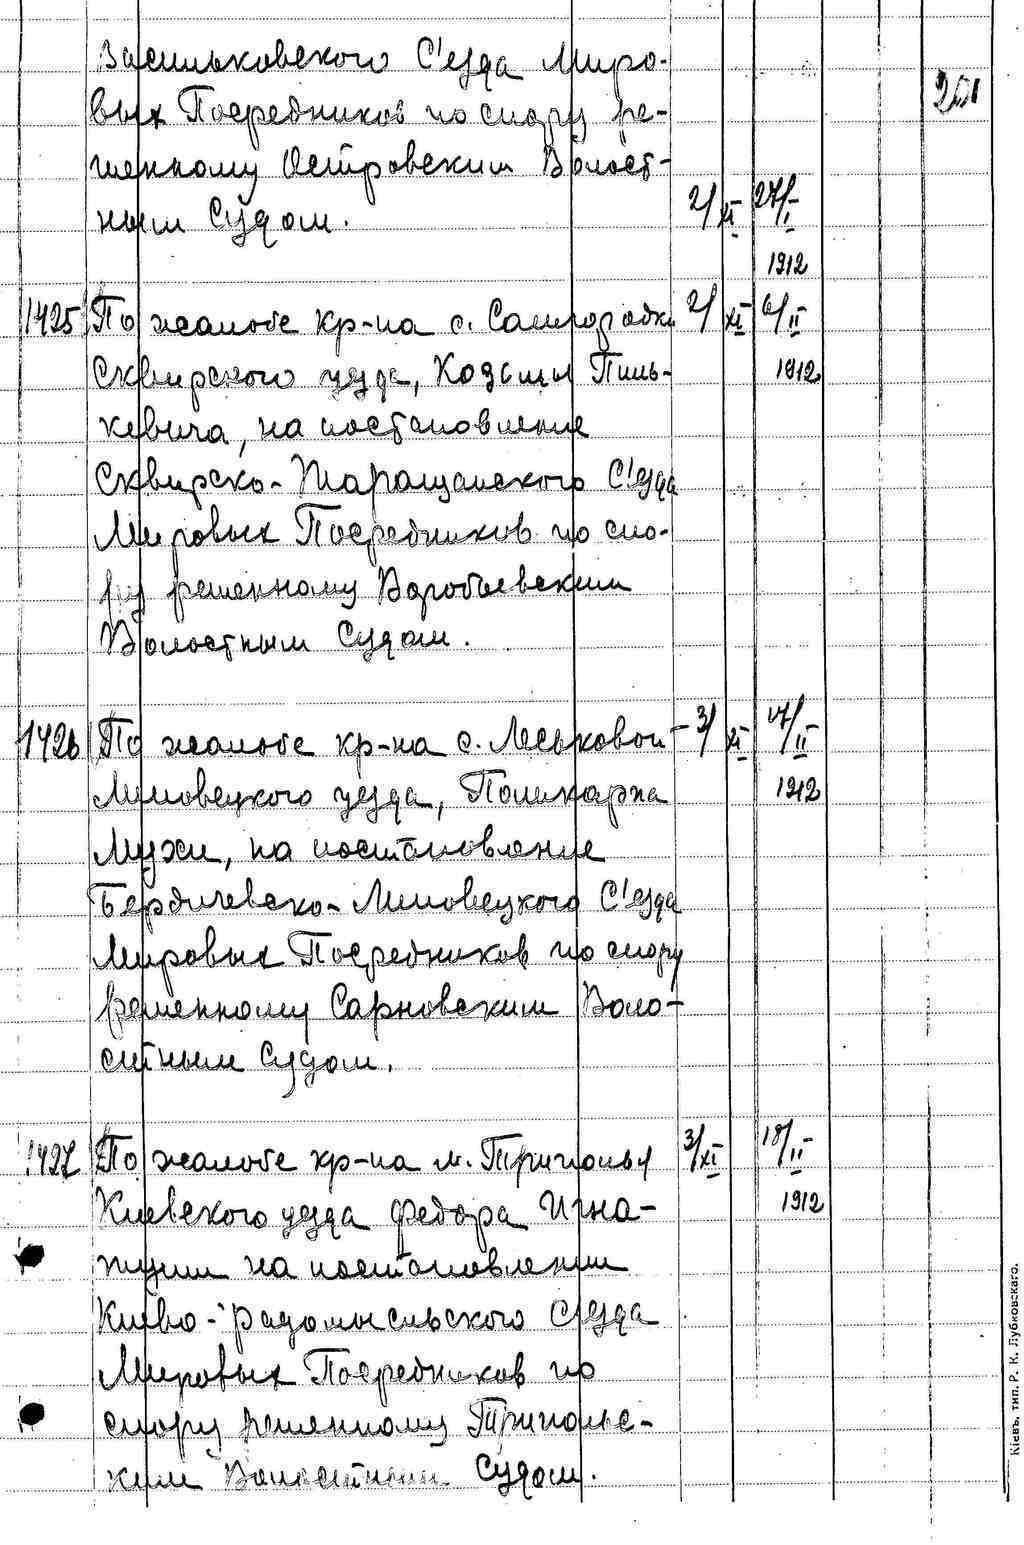 Васильковского С'езда Миро-
вых Посредников по спору ре-
шенному Островским Волост-
ным Судом. 2/XI 27/I
1912
201
1425 По жалобе кр-на с. Самгородка 2/XI 6/II
Сквирского уезда, Козьмы Пинь- 1912
кевича, на постановление
Сквирско-Таращанского С'езда
Мировых Посредников по спо-
ру решенному Воробьевским
Волостным Судом.
1426 По жалобе кр-на с. Леськовой 3/XI 17/II
Липовецкого уезда, Поликарпа 1912
Мухи, на постановление
Бердичевско-Липовецкого С'езда
Мировых Посредников по спору
решенному Сарновским Воло-
стным Судом.
1427 По жалобе кр-на м. Триполья 3/XI 18/II
Киевского уезда Федора Игна- 1912
на постановлении
Киево-Радомысльского С'езда
Мировых Посредников по
спору решенному Трипольс-
ким Волостным Судом.
Кіевъ, тип. Р. К. Лубковскаго.